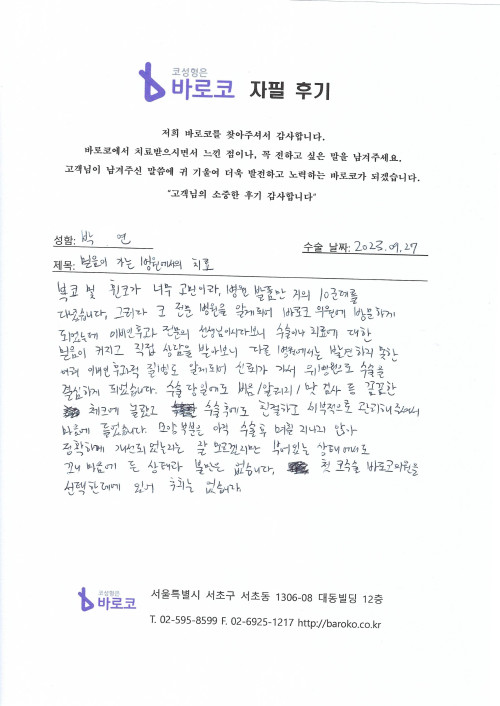 코성형은
바로코 자필 후기
저희 바로코를 찾아주셔서 감사합니다.
바로코에서 치료받으시면서 느낀 점이나, 꼭 전하고 싶은 말을 남겨주세요.
고객님이 남겨주신 말씀에 귀 기울여 더욱 발전하고 노력하는 바로코가 되겠습니다.
"고객님의 소중한 후기 감사합니다"
성함: 박 연 수술 날짜: 2023.09.27
제목: 믿음이 가는 병원에서의 치료
복코 및 휜코가 너무 고민이라, 병원 발품만 거의 10군데를
다녔습니다. 그러다 코 전문 병원을 알게되어 바로코 의원에 방문하게
되었는데 이비인후과 전문의 선생님이시다보니 수술이나 치료에 대한
믿음이 커지고 직접 상담을 받아보니 다른 병원에서는 발견하지 못한
여러 이비인후과적 질환도 알게되어 신뢰가 가서 이 병원으로 수술을
결심하게 되었습니다. 수술 당일에도 비염/알러지/ 맛 검사 등 꼼꼼한
체크에 놀랐고 수술후에도 친절하고 세부적으로 관리해주셔서
마음에 들었습니다. 모양 부분은 아직 수술 후 며칠 지나지 않아
정확하게 개선되었는지는 잘 모르겠지만 부어있는 상태에서도
꽤나 마음에 든 상태라 불만은 없습니다. 첫 코수술 바로코의원을
선택한데에 있어 후회는 없습니다.
코성형은
바로코
서울특별시 서초구 서초동 1306-08 대동빌딩 12층
T. 02-595-8599 F. 02-6925-1217 http://baroko.co.kr